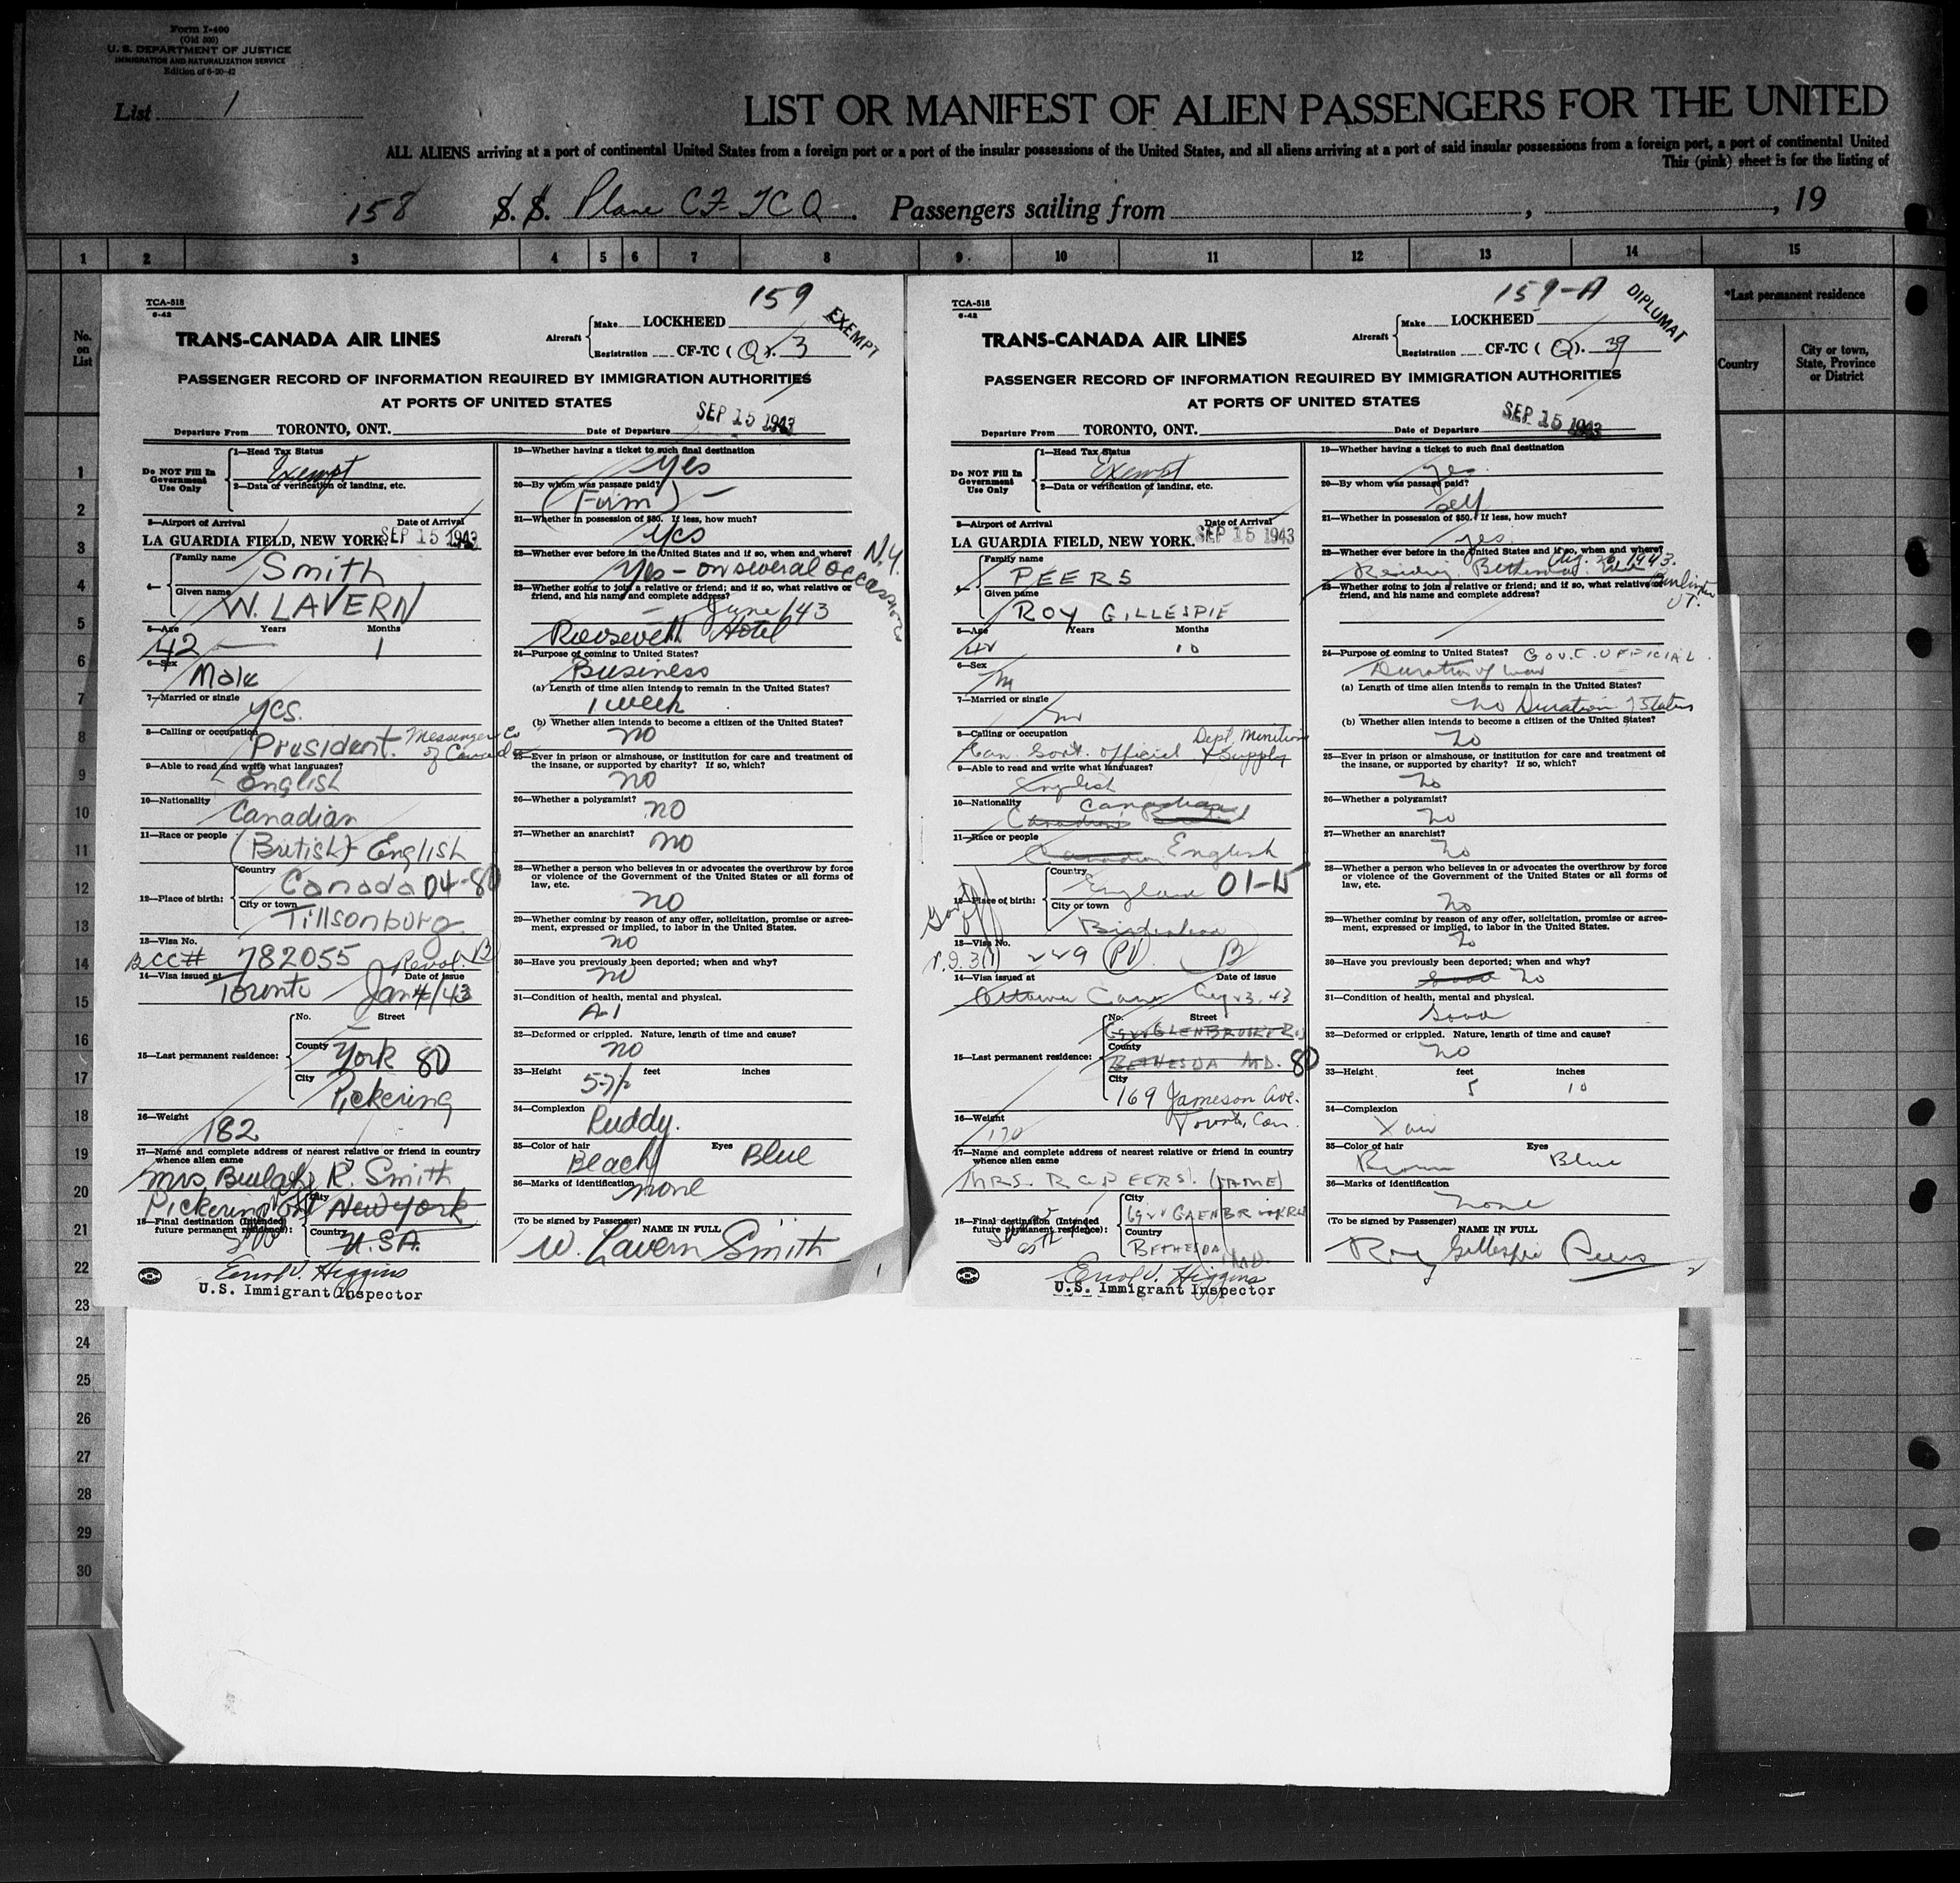 Form I-400
(Old 500)
U. S. DEPARTMENT OF JUSTICE
IMMIGRATION AND NATURALIZATION SERVICE
Edition of 6-20-42
List 1
LIST OR MANIFEST OF ALIEN PASSENGERS FOR THE UNITED
ALL ALIENS arriving at a port of continental United States from a foreign port or a port of the insular possessions of the United States, and all aliens arriving at a port of said insular possessions from a foreign port, a port of continental United
This (pink) sheet is for the listing of
158 S. S. Plane CF-TCQ. Passengers sailing from , , 19
1 2 3 4 5 6 7 8 9 10 11 12 13 14 15
No. on List
*Last permanent residence
Country
City or town, State, Province or District
1
2
3
4
5
6
7
8
9
10
11
12
13
14
15
16
17
18
19
20
21
22
23
24
25
26
27
28
29
30
TCA-518
6-42
159
EXEMPT
TRANS-CANADA AIR LINES
Aircraft Make LOCKHEED
Registration CF-TC ( Q ). 3
PASSENGER RECORD OF INFORMATION REQUIRED BY IMMIGRATION AUTHORITIES
AT PORTS OF UNITED STATES
Departure From TORONTO, ONT. Date of Departure SEP 15 1943
Do NOT Fill In Government Use Only
1—Head Tax Status
Exempt
2—Data of verification of landing, etc.
3—Airport of Arrival Date of Arrival
LA GUARDIA FIELD, NEW YORK. SEP 15 1943
4— Family name
Smith
Given name
W. LAVERN
5—Age Years Months
42 — 1
6—Sex
Male
7—Married or single
yes.
8—Calling or occupation
President. Messenger Co of Canada
9—Able to read and write what languages?
English
10—Nationality
Canadian
11—Race or people
(British) - English
12—Place of birth:
Country
Canada 04-80
City or town
Tillsonburg.
13—Visa No.
BCC# 782055 B
14—Visa issued at Date of issue
Toronto Jan 4/43
15—Last permanent residence:
No. Street
—
County
York 80
City
Pickering
16—Weight
182
17—Name and complete address of nearest relative or friend in country whence alien came
Mrs. Beulah R. Smith
Pickering Ont
18—Final destination (Intended future permanent residence):
City
New York
Country
U.S.A.
Errol V. Higgins
U.S. Immigrant Inspector
19—Whether having a ticket to such final destination
Yes
20—By whom was passage paid?
(Firm) —
21—Whether in possession of $50. If less, how much?
Yes
22—Whether ever before in the United States and if so, when and where?
Yes - on several occasions N.Y.
23—Whether going to join a relative or friend; and if so, what relative or friend, and his name and complete address?
— June/43
Roosevelt Hotel
24—Purpose of coming to United States?
Business
(a) Length of time alien intends to remain in the United States?
1 week
(b) Whether alien intends to become a citizen of the United States?
no
25—Ever in prison or almshouse, or institution for care and treatment of the insane, or supported by charity? If so, which?
no
26—Whether a polygamist?
no
27—Whether an anarchist?
no
28—Whether a person who believes in or advocates the overthrow by force or violence of the Government of the United States or all forms of law, etc.
no
29—Whether coming by reason of any offer, solicitation, promise or agreement, expressed or implied, to labor in the United States.
no
30—Have you previously been deported; when and why?
no
31—Condition of health, mental and physical.
A-1
32—Deformed or crippled. Nature, length of time and cause?
no
33—Height feet inches
5-7½
34—Complexion
Ruddy.
35—Color of hair Eyes
Black Blue
36—Marks of identification
none
(To be signed by Passenger) NAME IN FULL
W. Lavern Smith
1
TCA-518
6-42
159-A
DIPLOMAT
TRANS-CANADA AIR LINES
Aircraft Make LOCKHEED
Registration CF-TC ( Q ). 39
PASSENGER RECORD OF INFORMATION REQUIRED BY IMMIGRATION AUTHORITIES
AT PORTS OF UNITED STATES
Departure From TORONTO, ONT. Date of Departure SEP 15 1943
Do NOT Fill In Government Use Only
1—Head Tax Status
Exempt
2—Data or verification of landing, etc.
3—Airport of Arrival Date of Arrival
LA GUARDIA FIELD, NEW YORK. SEP 15 1943
4— Family name
PEERS
Given name
ROY GILLESPIE
5—Age Years Months
10
6—Sex
M
7—Married or single
m
8—Calling or occupation
Can. Govt. Official Dept. Munitions & Supply
9—Able to read and write what languages?
English
10—Nationality
Canadian
11—Race or people
Canadian English
12—Place of birth:
Country
England 01-15
City or town
Birkenhead
13—Visa No.
249 (PV) B
14—Visa issued at Date of issue
Ottawa Can. Aug 23, 43
15—Last permanent residence:
No. Street
GLENBROOK RD
County
BETHESDA MD. 80
City
169 Jameson Ave.
Toronto, Can.
16—Weight
170
17—Name and complete address of nearest relative or friend in country whence alien came
MRS. R G PEERS. (SAME)
18—Final destination (Intended future permanent residence):
City
Country
BETHESDA MD.
Errol V. Higgins
U.S. Immigrant Inspector
19—Whether having a ticket to such final destination
yes
20—By whom was passage paid?
self
21—Whether in possession of $50. If less, how much?
yes
22—Whether ever before in the United States and if so, when and where?
1943.
23—Whether going to join a relative or friend; and if so, what relative or friend, and his name and complete address?
24—Purpose of coming to United States? GOVT. OFFICIAL
Duration of war
(a) Length of time alien intends to remain in the United States?
no Duration of Status
(b) Whether alien intends to become a citizen of the United States?
No
25—Ever in prison or almshouse, or institution for care and treatment of the insane, or supported by charity? If so, which?
No
26—Whether a polygamist?
No
27—Whether an anarchist?
No
28—Whether a person who believes in or advocates the overthrow by force or violence of the Government of the United States or all forms of law, etc.
No
29—Whether coming by reason of any offer, solicitation, promise or agreement, expressed or implied, to labor in the United States.
No
30—Have you previously been deported; when and why?
Good No
31—Condition of health, mental and physical.
Good
32—Deformed or crippled. Nature, length of time and cause?
No
33—Height feet inches
5 10
34—Complexion
Fair
35—Color of hair Eyes
Brown Blue
36—Marks of identification
none
(To be signed by Passenger) NAME IN FULL
Roy Gillespie Peers
2